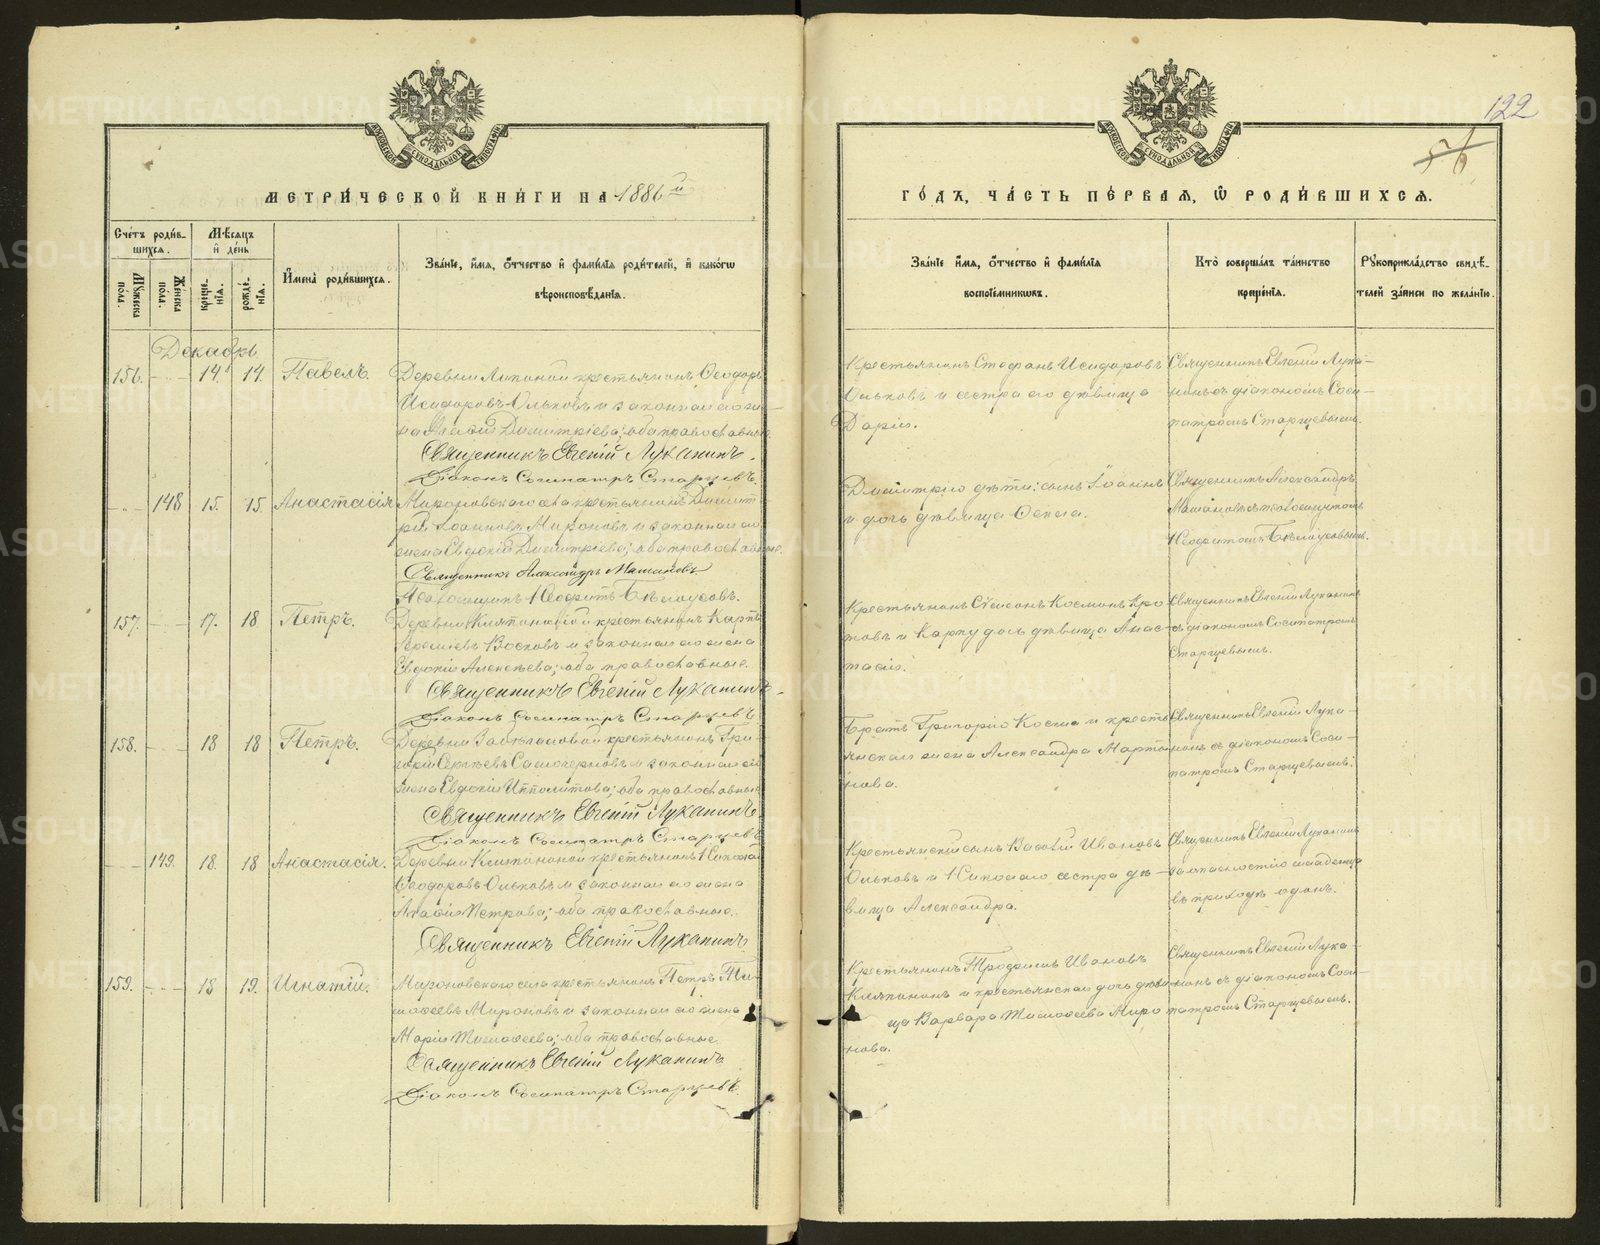 МЕТРИ́ЧЕСКОЙ КНИ́ГИ НА 1886й
ГО́ДЪ, ЧА́СТЬ ПЕ́РВАЯ, Ѽ РОДИ́ВШИХСЯ.
122
56
Сче́тъ роди́в-
шихся.
Мѣсяцъ
и де́нь
Имена̀ роди́вшихся.
Зва́нїе, и́мя, о́тчество и фами́лїя роди́телей, и како́гѡ
вѣроисповѣ́данїя.
Мужеска
пола.
Женска
пола.
креще-
нїя.
рожде-
нїя.
Зва́нїе и́мя, о́тчество и фами́лїя
воспрїе́мникѡвъ.
Кто̀ соверша́лъ та́инство
креще́нїя.
Рукоприкла́дство свидѣ́-
телей за́писи по жела́нїю.
Декабрь
156. 14. 14. Павелъ.
Деревни крестьянинъ Ѳеодоръ
Исидоровъ Ольковъ и законная его же-
на Димитріева; оба православные.
Священникъ Евгеній Луканинъ.
Діаконъ Сосипатръ Старцевъ.
Крестьянинъ Стефанъ Исидоровъ
Ольковъ и сестра его дѣвица
Дарія.
Священникъ Евгеній Лука-
нинъ съ діакономъ Соси-
патромъ Старцевымъ.
148 15. 15. Анастасія
Мироновскаго села крестьянинъ Димит-
рій Іоанновъ Мироновъ и законная его
жена Евдокія Димитріева; оба православные.
Священникъ Александръ
Псаломщикъ Неофитъ Бѣлоусовъ.
Димитрія дѣти: сынъ Іоаннъ
и дочь дѣвица
Священникъ Александръ
съ псаломщикомъ
Неофитомъ Бѣлоусовымъ.
157. 17. 18 Петръ.
Деревни крестьянинъ Карпъ
и законная его жена
Евдокія Алексѣева; оба православные.
Священникъ Евгеній Луканинъ.
Діаконъ Сосипатръ Старцевъ.
Крестьянинъ Косминъ Кро-
товъ и Карпу дочь дѣвица Анас-
тасія.
Священникъ Евгеній Луканинъ
съ діакономъ Сосипатромъ
Старцевымъ.
158. 18 18 Петръ.
Деревни крестьянинъ Гри-
горій Сергѣевъ и законная его
жена Евдокія Ипполитова; оба православные
Священникъ Евгеній Луканинъ.
Діаконъ Сосипатръ Старцевъ
Братъ Григорію Косма и кресть-
янская жена Александра Марты-
нова.
Священникъ Евгеній Лука-
нинъ съ діакономъ Соси-
патромъ Старцевымъ.
149. 18. 18 Анастасія.
Деревни крестьянинъ
Ѳеодоровъ Ольковъ и законная его жена
Агафія Петрова; оба православные.
Священникъ Евгеній Луканинъ.
Крестьянскій сынъ Ивановъ
Ольковъ и сестра дѣ-
вица Александра.
Священникъ Евгеній Луканинъ
за опасностію младенца
въ приходѣ одинъ.
159. 18 19. Игнатій.
Мироновскаго села крестьянинъ Петръ Ти-
моѳеевъ Мироновъ и законная его жена
Марія Тимоѳеева; оба православные.
Священникъ Евгеній Луканинъ
Діаконъ Сосипатръ Старцевъ.
Крестьянинъ Трофимъ Ивановъ
и крестьянская дочь дѣви-
ца Варвара Тимоѳеева Миро-
нова.
Священникъ Евгеній Лука-
нинъ съ діакономъ Соси-
патромъ Старцевымъ.